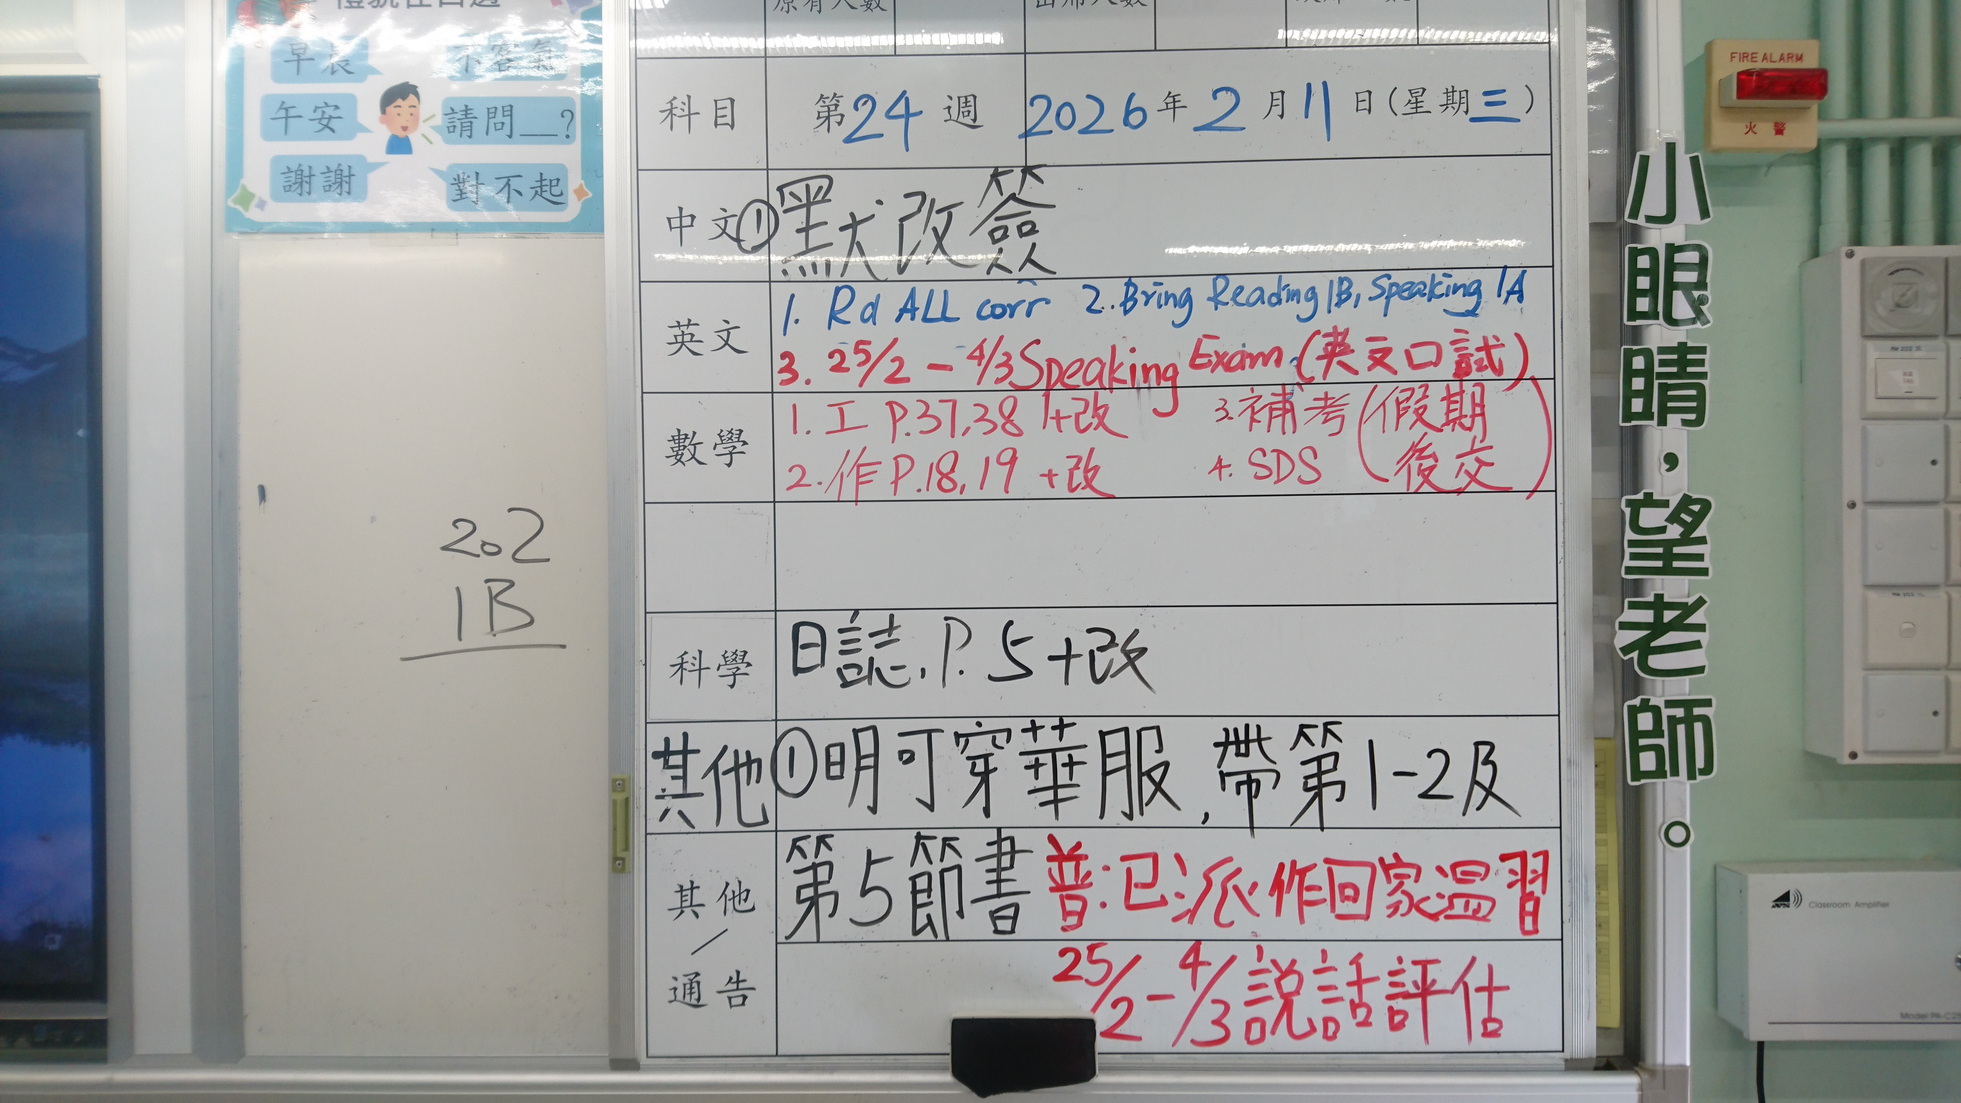 早晨
不客氣
午安
請問__?
謝謝
對不起
202
1B
原有人數
科目 第24週 2026年2月11日(星期三)
中文 ①默改簽
英文 1. Rd ALL corr 2. Bring Reading 1B, Speaking 1A
3. 25/2 - 4/3 Speaking Exam (英文口試)
數學 1. 工 P.37,38 +改 3. 補考 (假期
2. 作 P.18,19 +改 4. SDS 後交)
科學 日誌, P. 5 +改
其他 ①明可穿華服,帶第1-2及
其他/通告 第5節書 普:已派作回家溫習
25/2 - 4/3 說話評估
小眼睛,望老師。
FIRE ALARM
火警
Classroom Amplifier